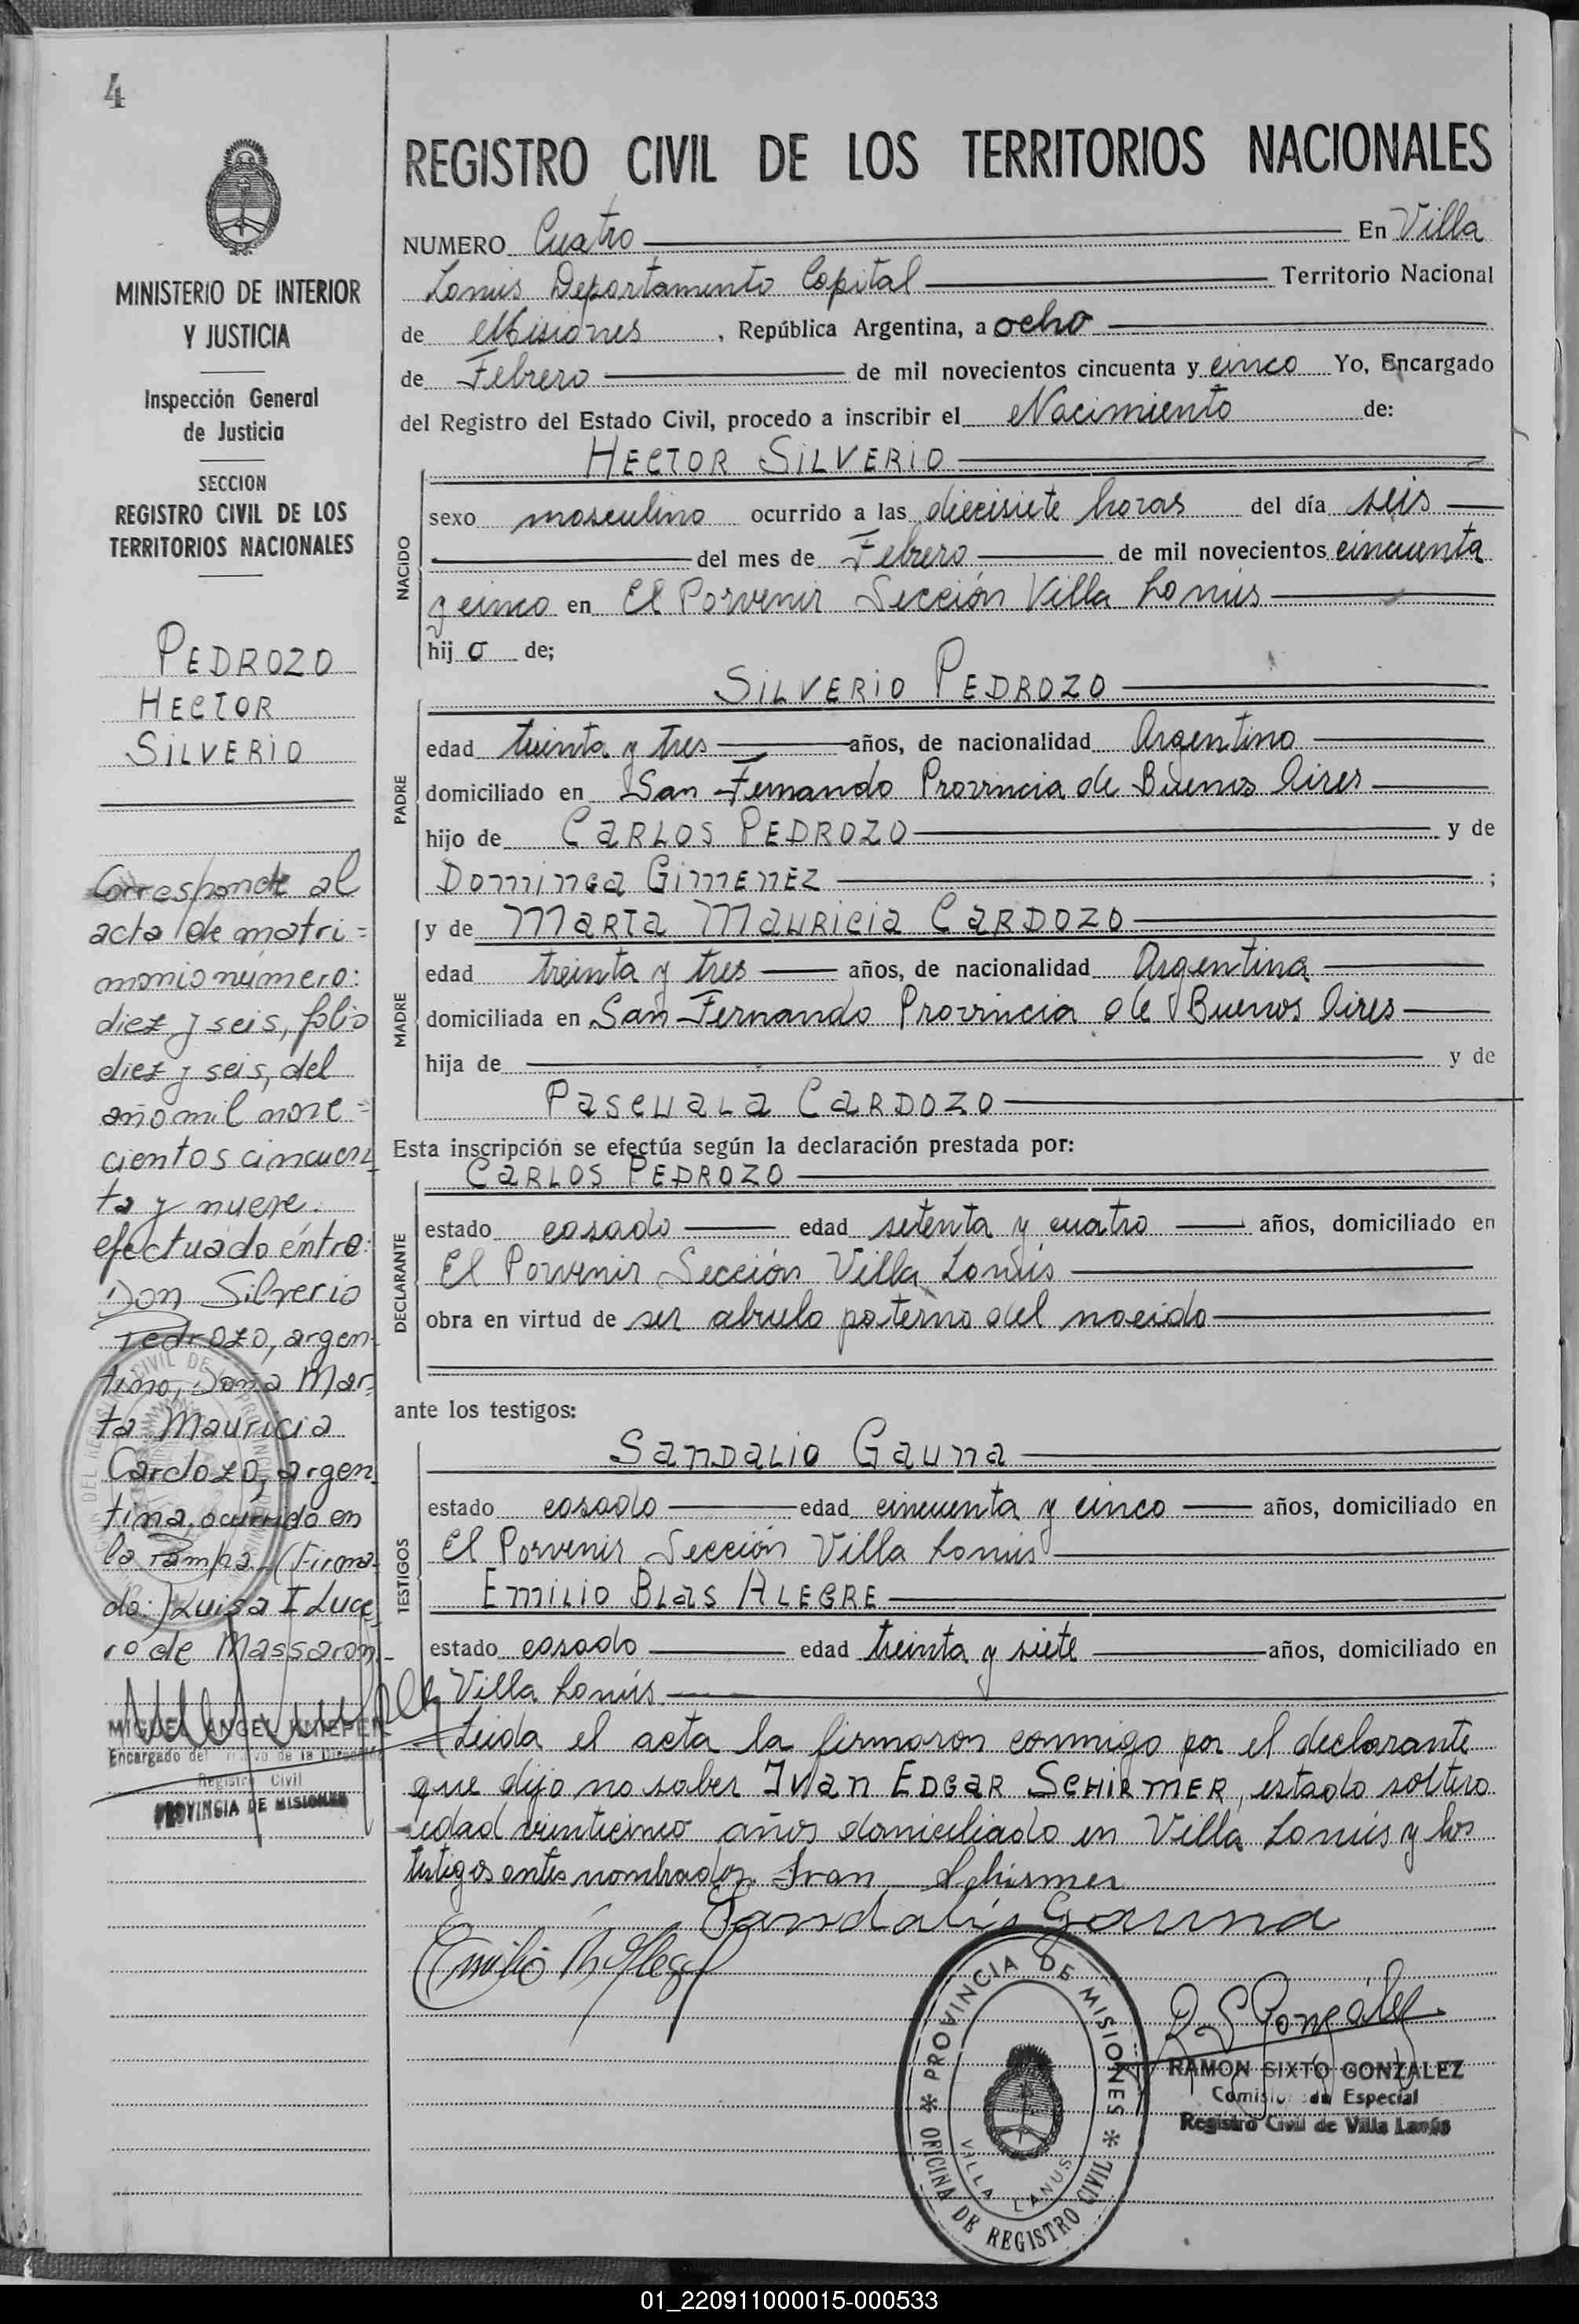 4
MINISTERIO DE INTERIOR
Y JUSTICIA
Inspección General
de Justicia
SECCION
REGISTRO CIVIL DE LOS
TERRITORIOS NACIONALES
PEDROZO
HECTOR
SILVERIO
Corresponde al
acta de matri=
monio número:
diez y seis, folio
diez y seis, del
año mil nove=
cientos cincuen
ta y nueve.
efectuado entre:
Don Silverio
Pedrozo, argen-
tino, Doña Mar-
ta Mauricia
Cardozo, argen
tina, ocurrido en
la Pampa.-(Firma-
do:) Luisa I Luce
ro de Massaron.-
MIGUEL ANGEL
Encargado del de la Dirección
Registro Civil
PROVINCIA DE MISIONES
REGISTRO CIVIL DE LOS TERRITORIOS NACIONALES
NUMERO Cuatro En Villa
Lanús Departamento Capital Territorio Nacional
de Misiones, República Argentina, a ocho
de Febrero de mil novecientos cincuenta y cinco Yo, Encargado
del Registro del Estado Civil, procedo a inscribir el Nacimiento de:
HECTOR SILVERIO
NACIDO
sexo masculino ocurrido a las diecisiete horas del día seis
del mes de Febrero de mil novecientos cincuenta
y cinco en El Porvenir Sección Villa Lanús
hij o de;
SILVERIO PEDROZO
PADRE
edad treinta y tres años, de nacionalidad Argentino
domiciliado en San Fernando Provincia de Buenos Aires
hijo de CARLOS PEDROZO y de
DOMINGA GIMENEZ ;
y de MARTA MAURICIA CARDOZO
MADRE
edad treinta y tres años, de nacionalidad Argentina
domiciliada en San Fernando Provincia de Buenos Aires
hija de y de
PASCUALA CARDOZO
Esta inscripción se efectúa según la declaración prestada por:
CARLOS PEDROZO
DECLARANTE
estado casado edad setenta y cuatro años, domiciliado en
El Porvenir Sección Villa Lanús
obra en virtud de ser abuelo paterno del nacido
ante los testigos:
SANDALIO GAUNA
TESTIGOS
estado casado edad cincuenta y cinco años, domiciliado en
El Porvenir Sección Villa Lanús
EMILIO BLAS ALEGRE
estado casado edad treinta y siete años, domiciliado en
Villa Lanús
Leida el acta la firmaron conmigo por el declarante
que dijo no saber IVAN EDGAR SCHIRMER, estado soltero
edad veinticinco años domiciliado en Villa Lanús y los
testigos antes nombrados. Ivan Schirmer
Sandalio Gauna
Emilio B Alegre
R S González
RAMON SIXTO GONZALEZ
Comisionado Especial
Registro Civil de Villa Lanús
PROVINCIA DE MISIONES
OFICINA DE REGISTRO CIVIL
VILLA LANUS
01_220911000015-000533